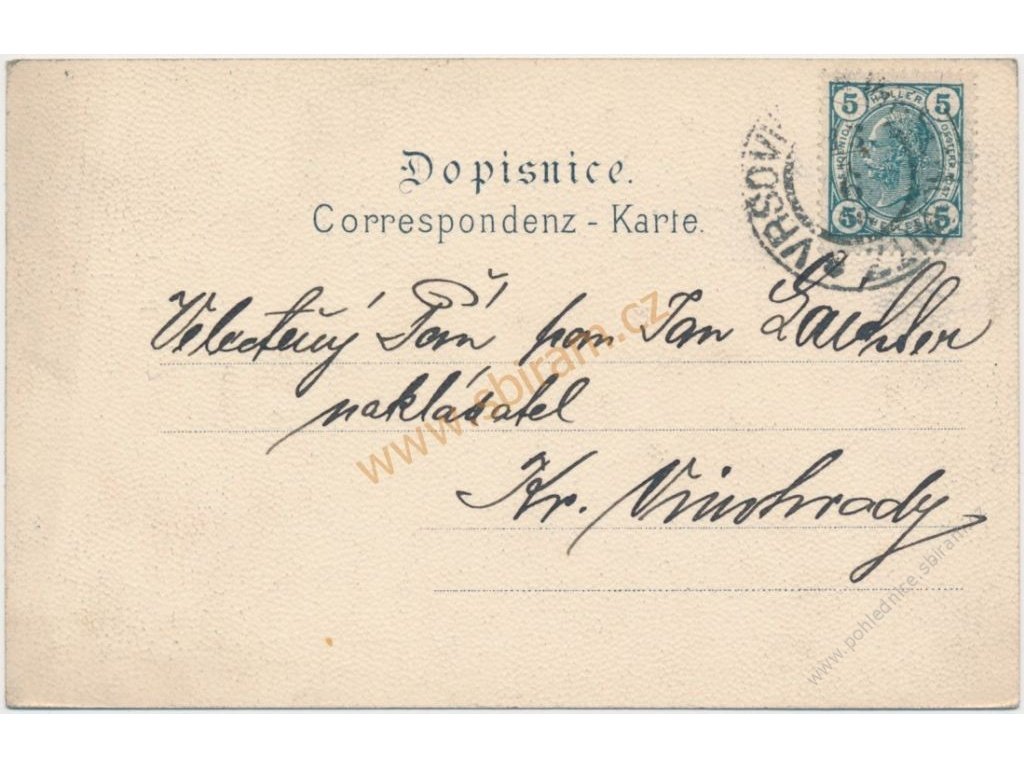 Dopisnice.
Correspondenz - Karte.
5 HELLER 5
5 5
VRŠOVI
Velectěný Pán pan Jan Laichter
nakladatel
Kr. Vinohrady
www.sbiram.cz
www.pohlednice.sbiram.cz